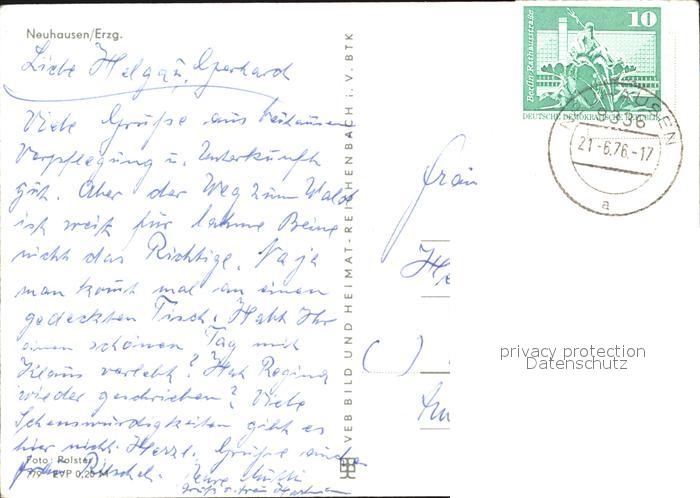 Neuhausen/Erzg.
Liebe Helga u. Gerhard
Viele Grüße aus Neuhausen
Verpflegung u. Unterkunft
gut. Aber der Weg zum Wald
ist weit für lahme Beine
nicht das Richtige. Na ja
man kommt mal an einen
gedeckten Tisch. Habt Ihr
einen schönen Tag mit
Klaus verlebt? Hat Regina
wieder geschrieben? Viele
Sehenswürdigkeiten gibt es
hier nicht. Herzl. Grüße
Foto: Rolster
EVP 0,20 M
Eure Mutti
Gruß v. Frau
VEB BILD UND HEIMAT-REICHENBACH i. V. BTK
Frau
10
Berlin, Rathausstraße
DEUTSCHE DEMOKRATISCHE REPUBLIK
NEUHAUSEN
9336
21.-6.76.-17
a
privacy protection
Datenschutz